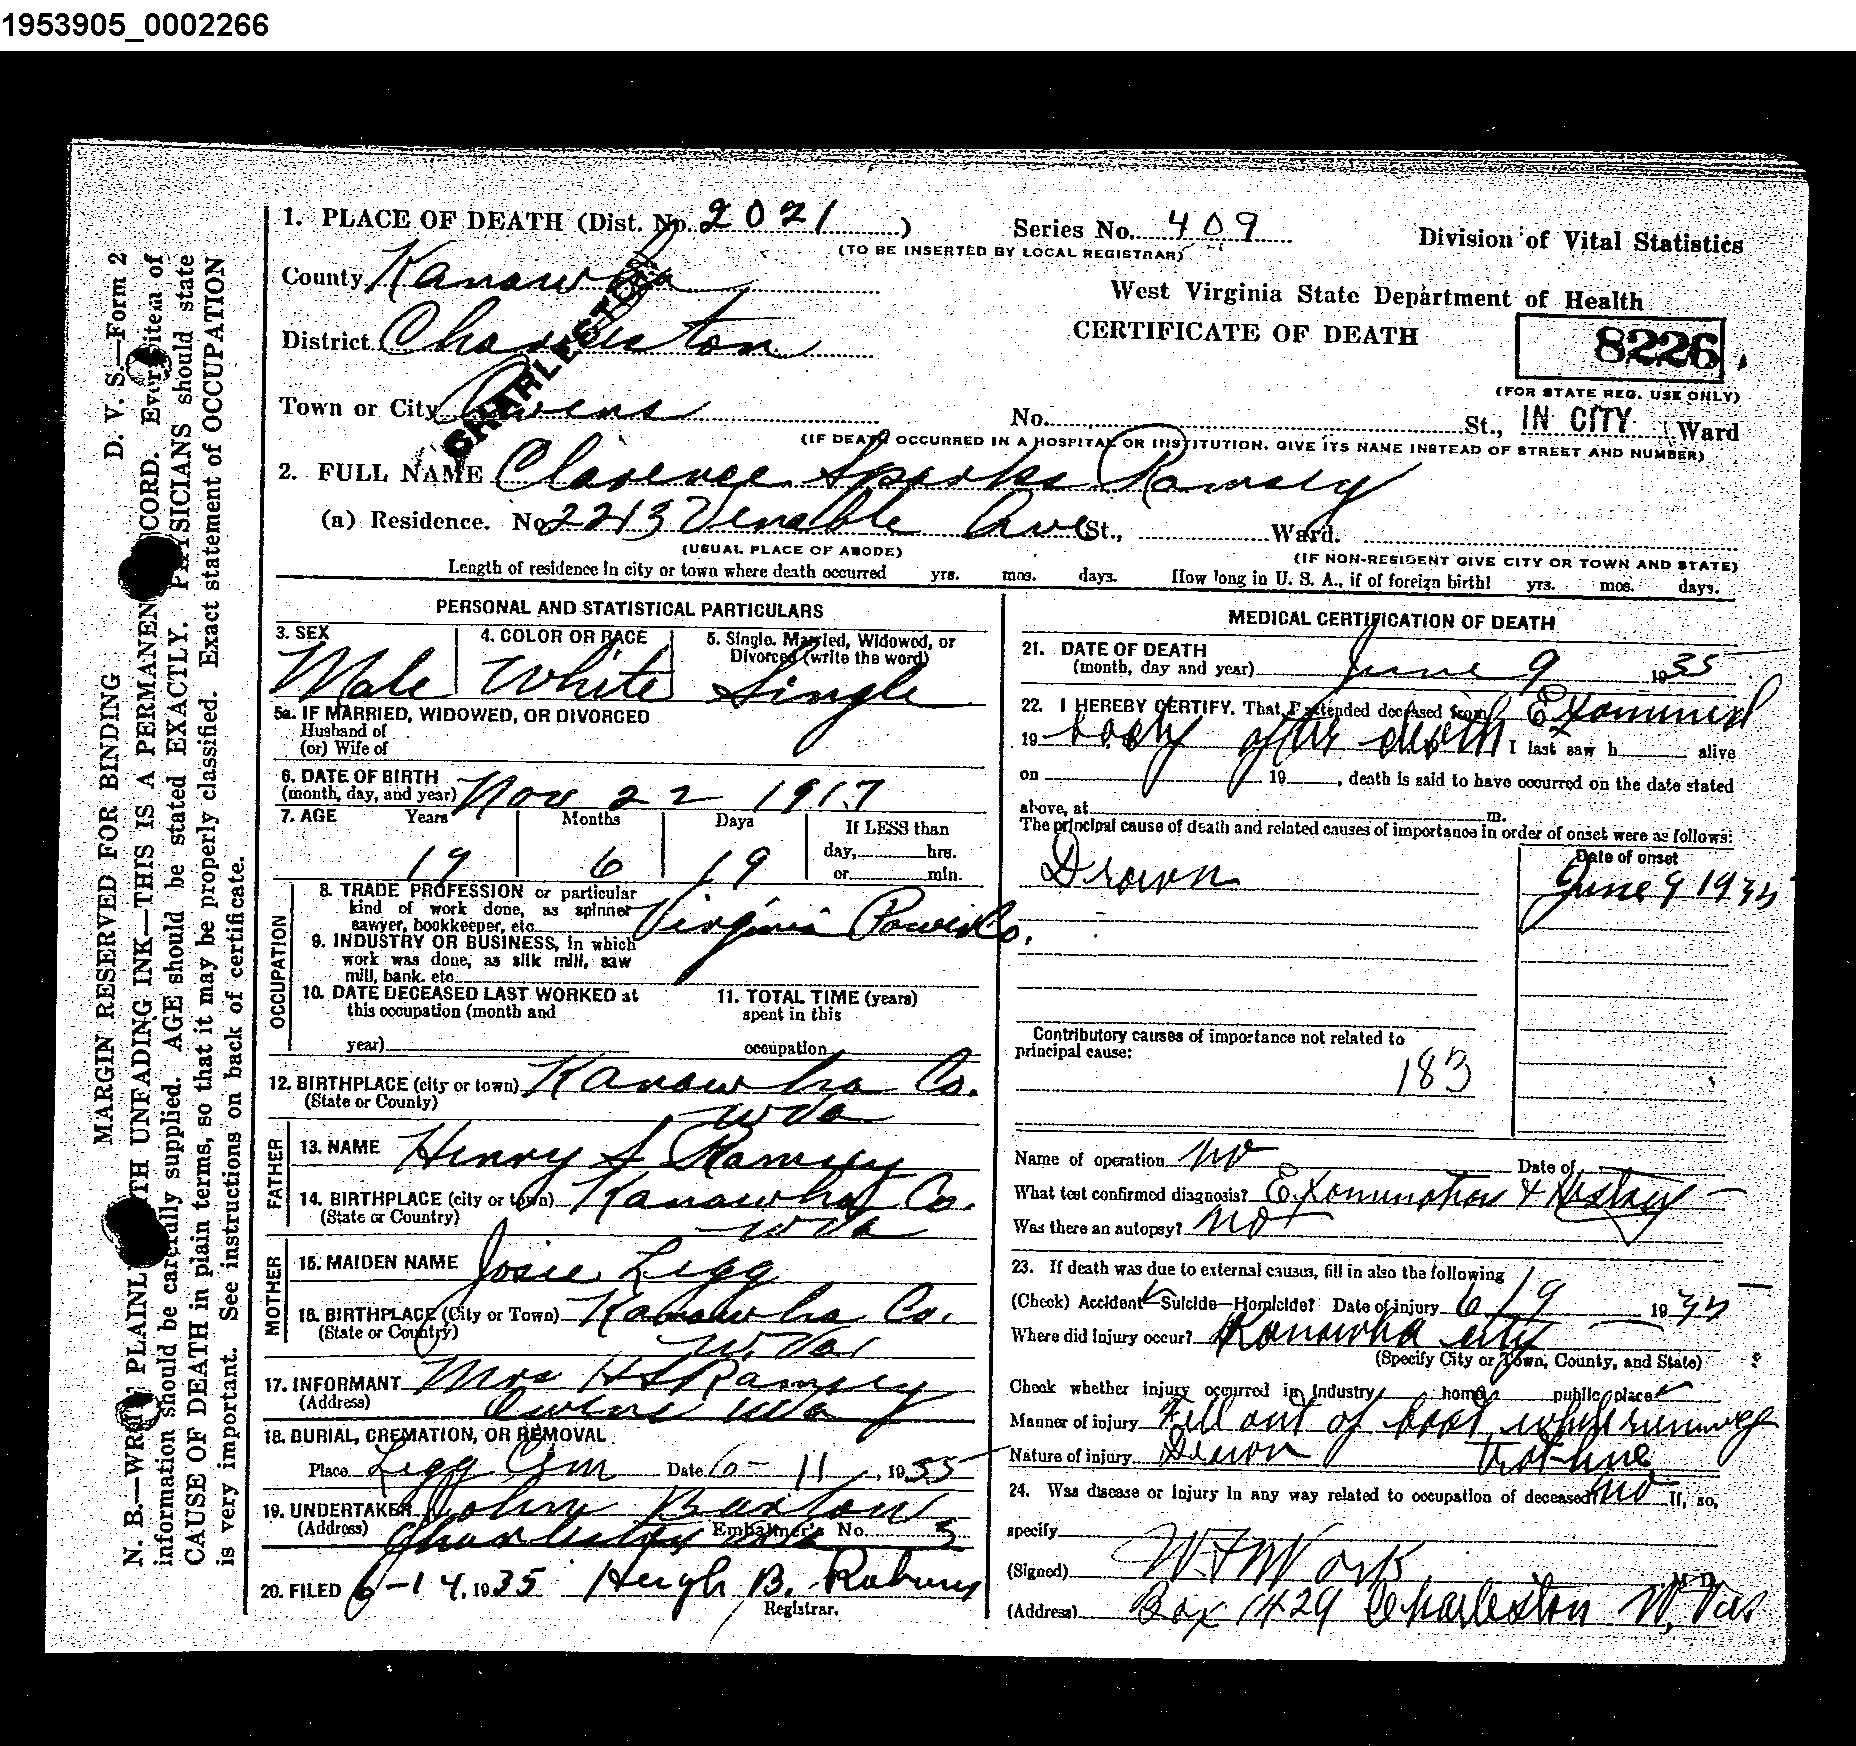 1953905_0002266
MARGIN RESERVED FOR BINDING D. V. S.—Form 2
N. B.—WRITE PLAINLY WITH UNFADING INK—THIS IS A PERMANENT RECORD. Every item of
information should be carefully supplied. AGE should be stated EXACTLY. PHYSICIANS should state
CAUSE OF DEATH in plain terms, so that it may be properly classified. Exact statement of OCCUPATION
is very important. See instructions on back of certificate.
1. PLACE OF DEATH (Dist. No. 2021 ) Series No. 409 Division of Vital Statistics
(TO BE INSERTED BY LOCAL REGISTRAR)
County Kanawha West Virginia State Department of Health
District Charleston CERTIFICATE OF DEATH 8226
CHARLESTON
(FOR STATE REG. USE ONLY)
Town or City Owens No. St., IN CITY Ward
(IF DEATH OCCURRED IN A HOSPITAL OR INSTITUTION, GIVE ITS NAME INSTEAD OF STREET AND NUMBER)
2. FULL NAME Clarence Sparks Ramsey
(a) Residence. No 2213 Venable Ave St., Ward.
(USUAL PLACE OF ABODE) (IF NON-RESIDENT GIVE CITY OR TOWN AND STATE)
Length of residence in city or town where death occurred yrs. mos. days. How long in U. S. A., if of foreign birth! yrs. mos. days.
PERSONAL AND STATISTICAL PARTICULARS
3. SEX 4. COLOR OR RACE 5. Single, Married, Widowed, or
Divorced (write the word)
Male White Single
5a. IF MARRIED, WIDOWED, OR DIVORCED
Husband of
(or) Wife of
6. DATE OF BIRTH
(month, day, and year) Nov 22 1917
7. AGE Years Months Days If LESS than
day, hrs.
19 6 19 or min.
OCCUPATION
8. TRADE PROFESSION or particular
kind of work done, as spinner
sawyer, bookkeeper, etc. Virginia Power Co.
9. INDUSTRY OR BUSINESS, in which
work was done, as silk mill, saw
mill, bank, etc
10. DATE DECEASED LAST WORKED at
this occupation (month and
year)
11. TOTAL TIME (years)
spent in this
occupation
12. BIRTHPLACE (city or town) Kanawha Co.
(State or County) W Va
FATHER
13. NAME Henry S Ramsey
14. BIRTHPLACE (city or town) Kanawha Co.
(State or Country) W Va
MOTHER
15. MAIDEN NAME Josie Legg
16. BIRTHPLACE (City or Town) Kanawha Co.
(State or Country) W. Va.
17. INFORMANT Mrs H S Ramsey
(Address) Owens W Va
18. BURIAL, CREMATION, OR REMOVAL
Place Legg Cem Date 6 - 11, 1935
19. UNDERTAKER John Baxton
(Address) Charleston W Va Embalmer's No. 3
20. FILED 6-14, 1935 Hugh B. Robins
Registrar.
MEDICAL CERTIFICATION OF DEATH
21. DATE OF DEATH
(month, day and year) June 9 1935
22. I HEREBY CERTIFY, That I attended deceased from Examined
19 body after death I last saw h alive
on 19 , death is said to have occurred on the date stated
above, at m.
The principal cause of death and related causes of importance in order of onset were as follows:
Date of onset
Drown June 9 1935
Contributory causes of importance not related to
principal cause:
183
Name of operation no Date of
What test confirmed diagnosis? Examination & History
Was there an autopsy? no
23. If death was due to external causes, fill in also the following
(Check) Accident ✓ Suicide—Homicide? Date of injury 6/9 1935
Where did injury occur? Kanawha city
(Specify City or Town, County, and State)
Check whether injury occurred in industry home public place ✓
Manner of injury Fell out of boat while running
Nature of injury Drown Trot-line
24. Was disease or injury in any way related to occupation of deceased? no If, so,
specify
(Signed) W F Work M D
(Address) Box 1429 Charleston W. Va